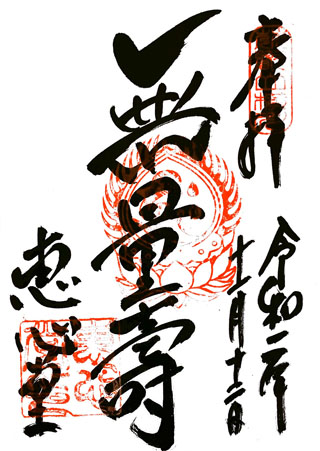 奉拝
令和二年
十一月十二日
無量壽
恵心堂